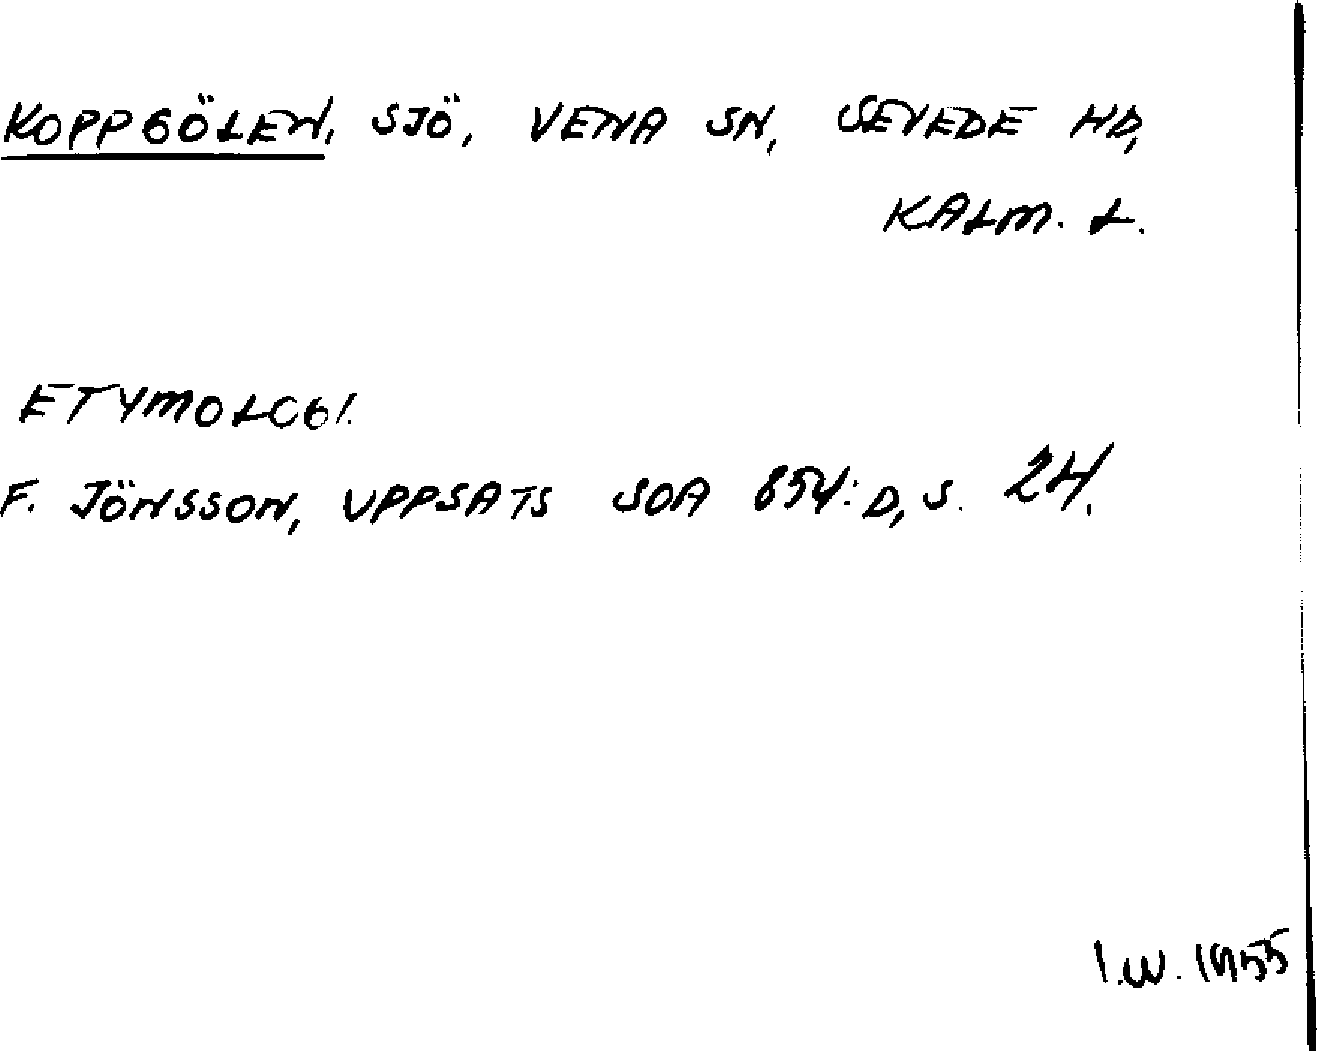 KOPPGÖLEN, SJÖ, VENA SN, SEVEDE HD,
KALM. L.
ETYMOLOGI.
F. JÖNSSON, UPPSATS SOA 854:D, S. 24.
I.W. 1955